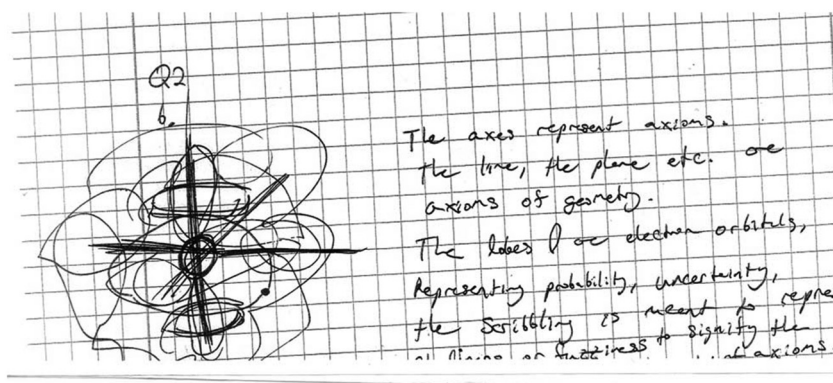 Q2
b.
The axes represent axioms.
the line, the plane etc. are
axioms of geometry.
The lobes are electron orbitals,
Representing probability, uncertainty,
the scribbling is meant to repre
or fuzziness to signify the
of axioms.